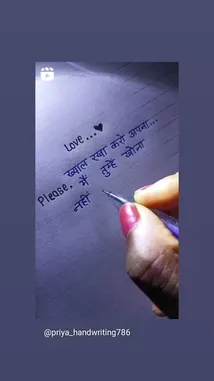 Love...♥
ख्याल रखा करो अपना...
Please, मैं तुम्हे खोना
नहीं
@priya_handwriting786